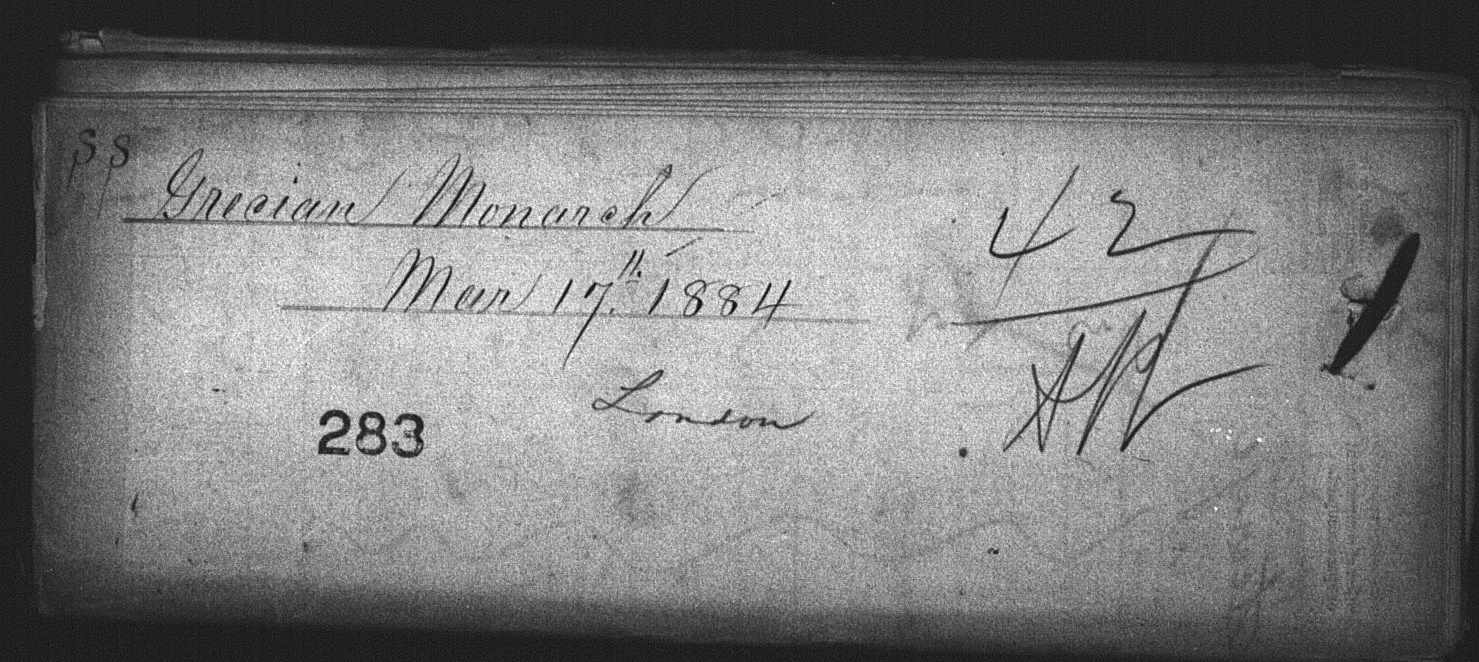 SS Grecian Monarch
Mar 17th. 1884
London
283
42